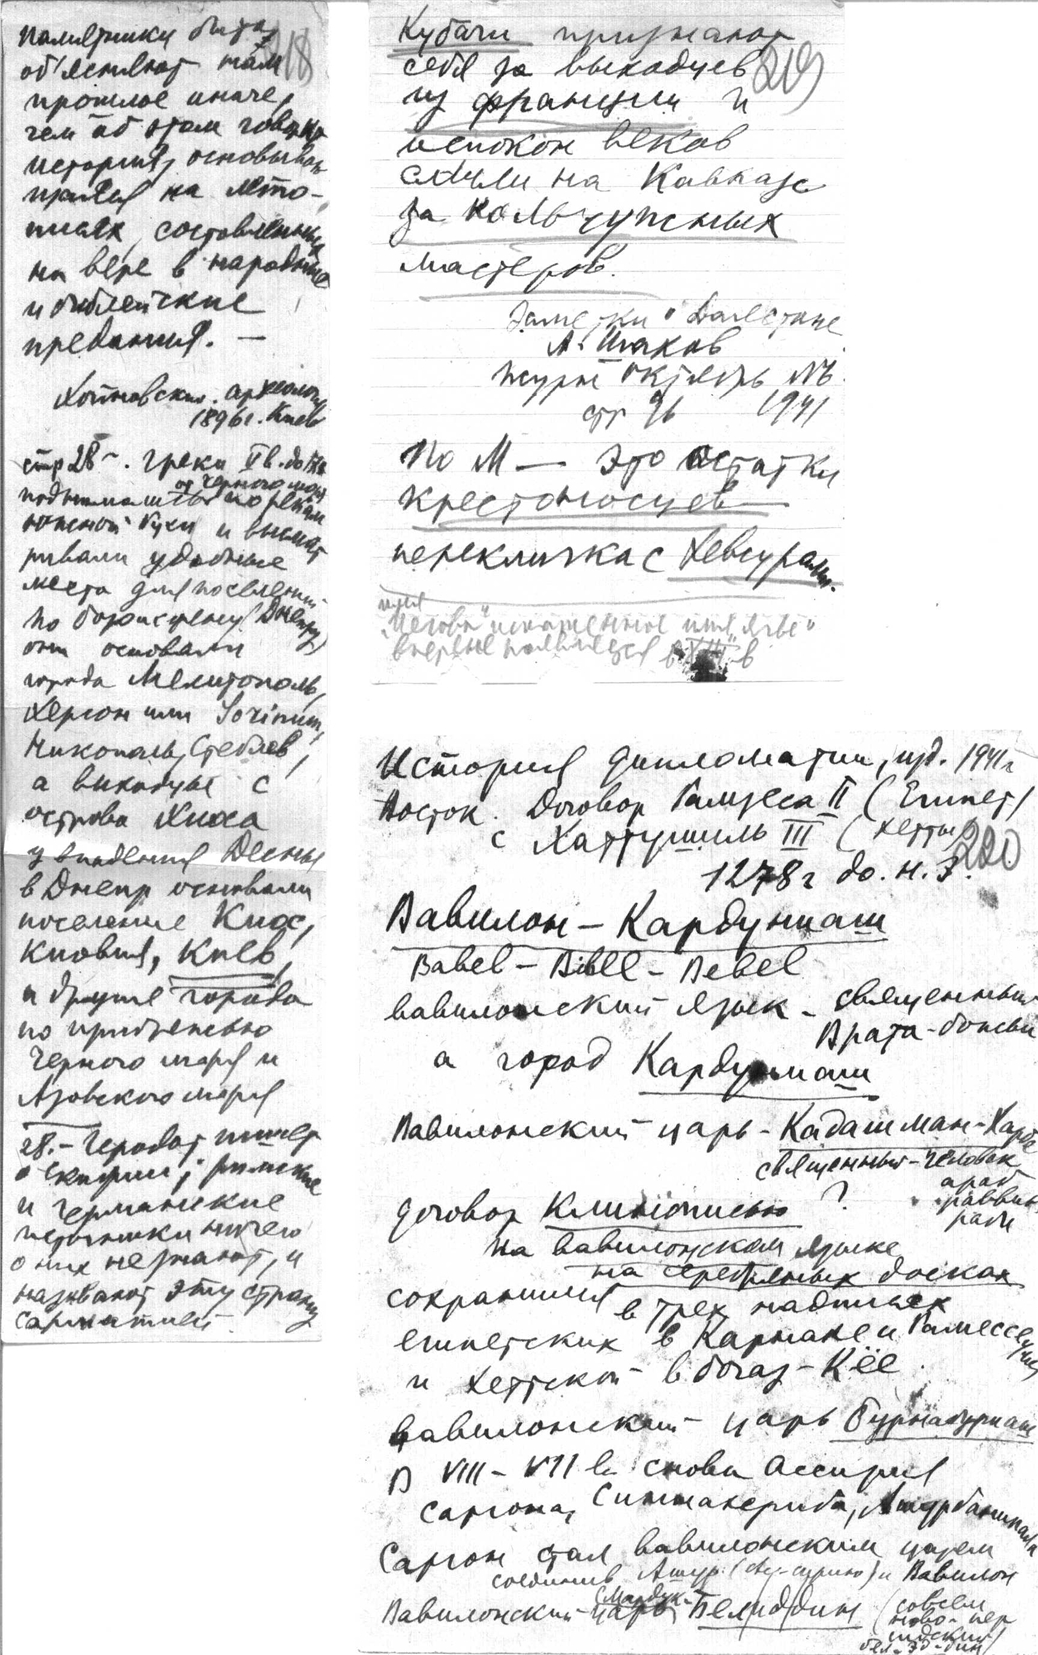 218
Памятники быта
объясняют нам
прошлое иначе,
чем об этом говорит
история, основывавшаяся
на лето-
писях, составленных
на вере в народные
и библейские
предания. —
Хойновский. археолог
1896 г. Киев
стр 28 –. Греки V в. до
от Черного моря
поднимались по рекам
южной Руси и высмат
ривали удобные
места для поселений
По борисфену (Днепру)
они основали
города Мелитополь,
Херсон или
Никополь, Стеблев,
а выходцы с
острова Хиоса
у впадения Десны
в Днепр основали
поселение Киос,
Киовия, Киев,
и другие города
по прибрежью
Черного моря и
Азовского моря
28. – Геродот пишет
о скифии; римские
и германские
источники ничего
о них не знают, и
называют эту страну
сарматией.
219
Кубачи признают
себя за выходцев
из франции и
испокон веков
слыли на Кавказе
за кольчужных
мастеров.
Заметки о Дагестане
А. Исаков
журн октябрь №
стр 96 1941
По М — это остатки
крестоносцев
перекличка с Хевсурами.
имя
"Иегова" искаженное имя "Ягве"
впервые появляется в XIII в
История дипломатии, изд. 1941 г
220
Восток. Договор Рамзеса II (Египет)
с Хаттушиль III (хетты)
1278 г до. н. э.
Вавилон – Кардуниаш
Babel – Bibel – Bebel
вавилонский язык – священный
Врата – божьи
а город Кардуниаш
Вавилонский царь – Кадашман – Харбе
священный – человек
араб
раввин
раби
договор Клинописью ?
на вавилонском языке
на серебряных досках
сохранился в трех надписях
египетских в Карнаке и Рамессеуме
и Хеттской – в Богаз – Кёе.
вавилонский – царь Бурнабуриаш
В VIII – VII в снова Ассирия
Саргона, Синнахериба, Ашурбанипала
Саргон стал вавилонским царем
соединив Ашур и Вавилон
(Мардук
Вавилонский царь Белиддин (совсем
ново – пер
сидский)
бел – Эд – дин